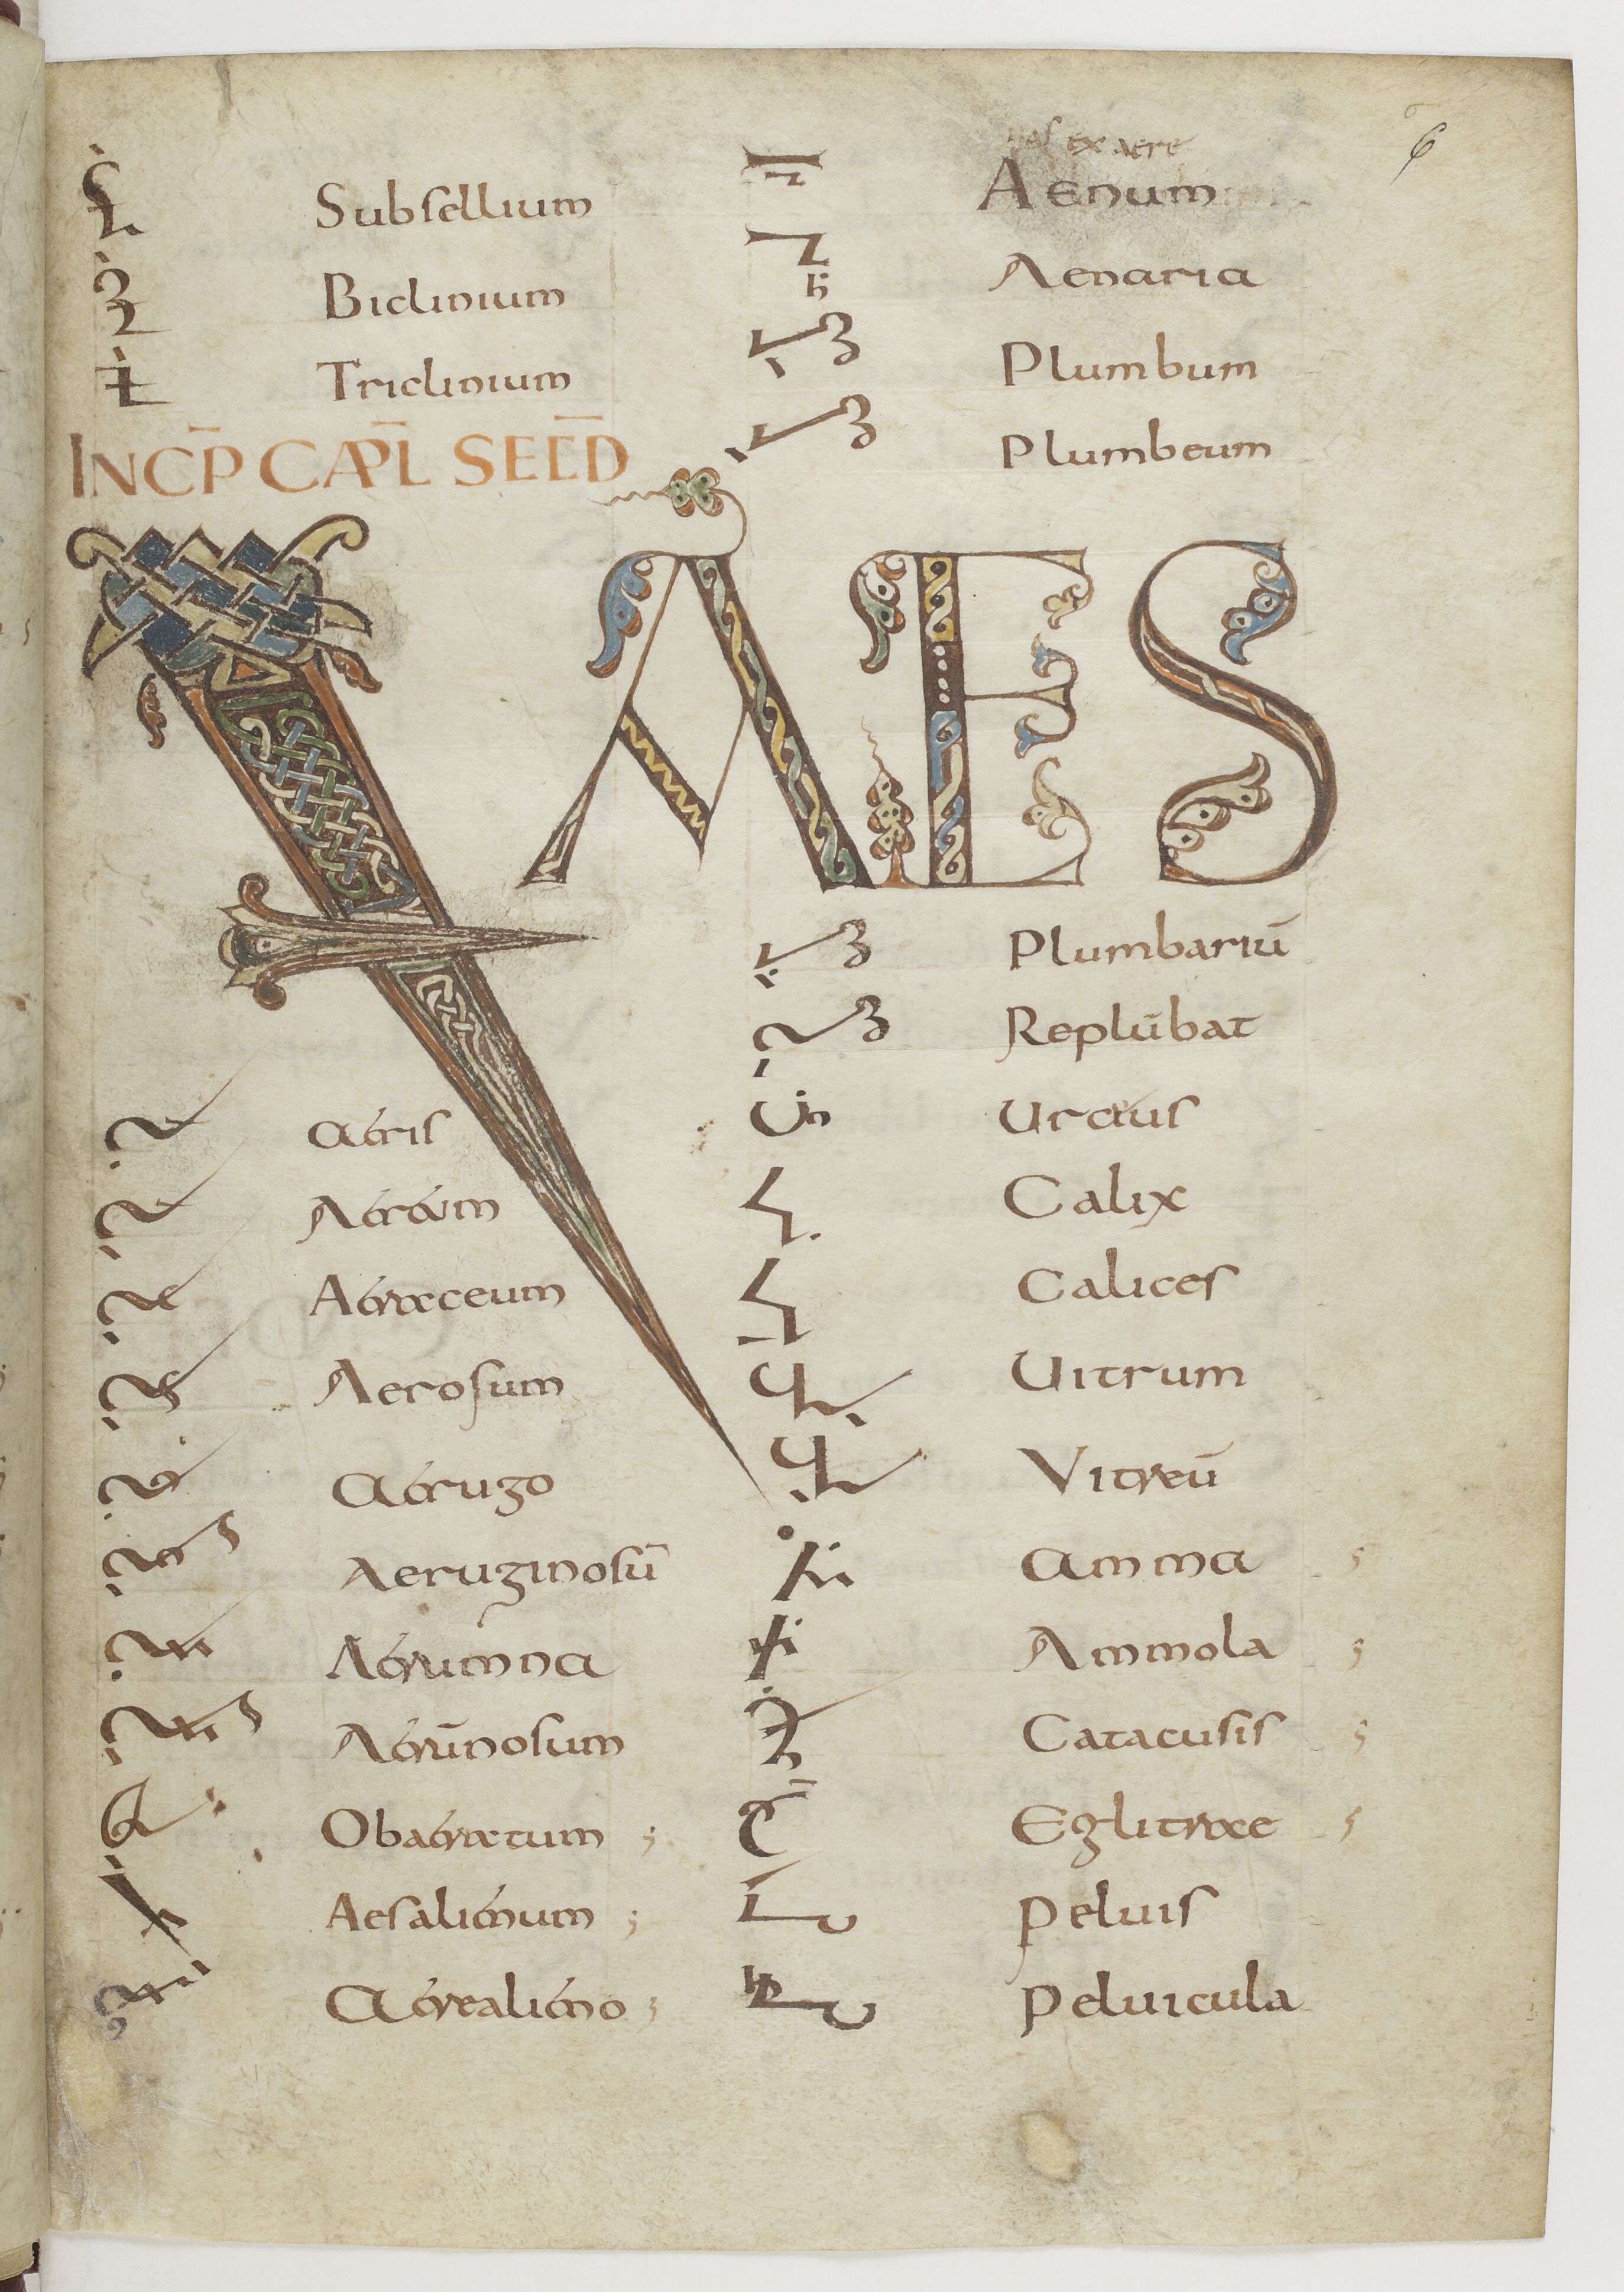 6
Subsellium
Biclinium
Triclinium
INCP̄ CAP̄L SEC̄D
AES
aeris
Aeream
Aeraceum
Aerosum
aerugo
Aeruginosū
Aerumna
Aerūnosum
Obaeratum ;
Aesalienum ;
aerealieno ;
ex aere
Aenum
Aenaria
Plumbum
Plumbeum
Plumbariū
Replūbat
Urceus
Calix
Calices
Uitrum
Vitreū
amma ;
Ammola ;
Catacusis ;
Eglitrae ;
Peluis
Peluicula